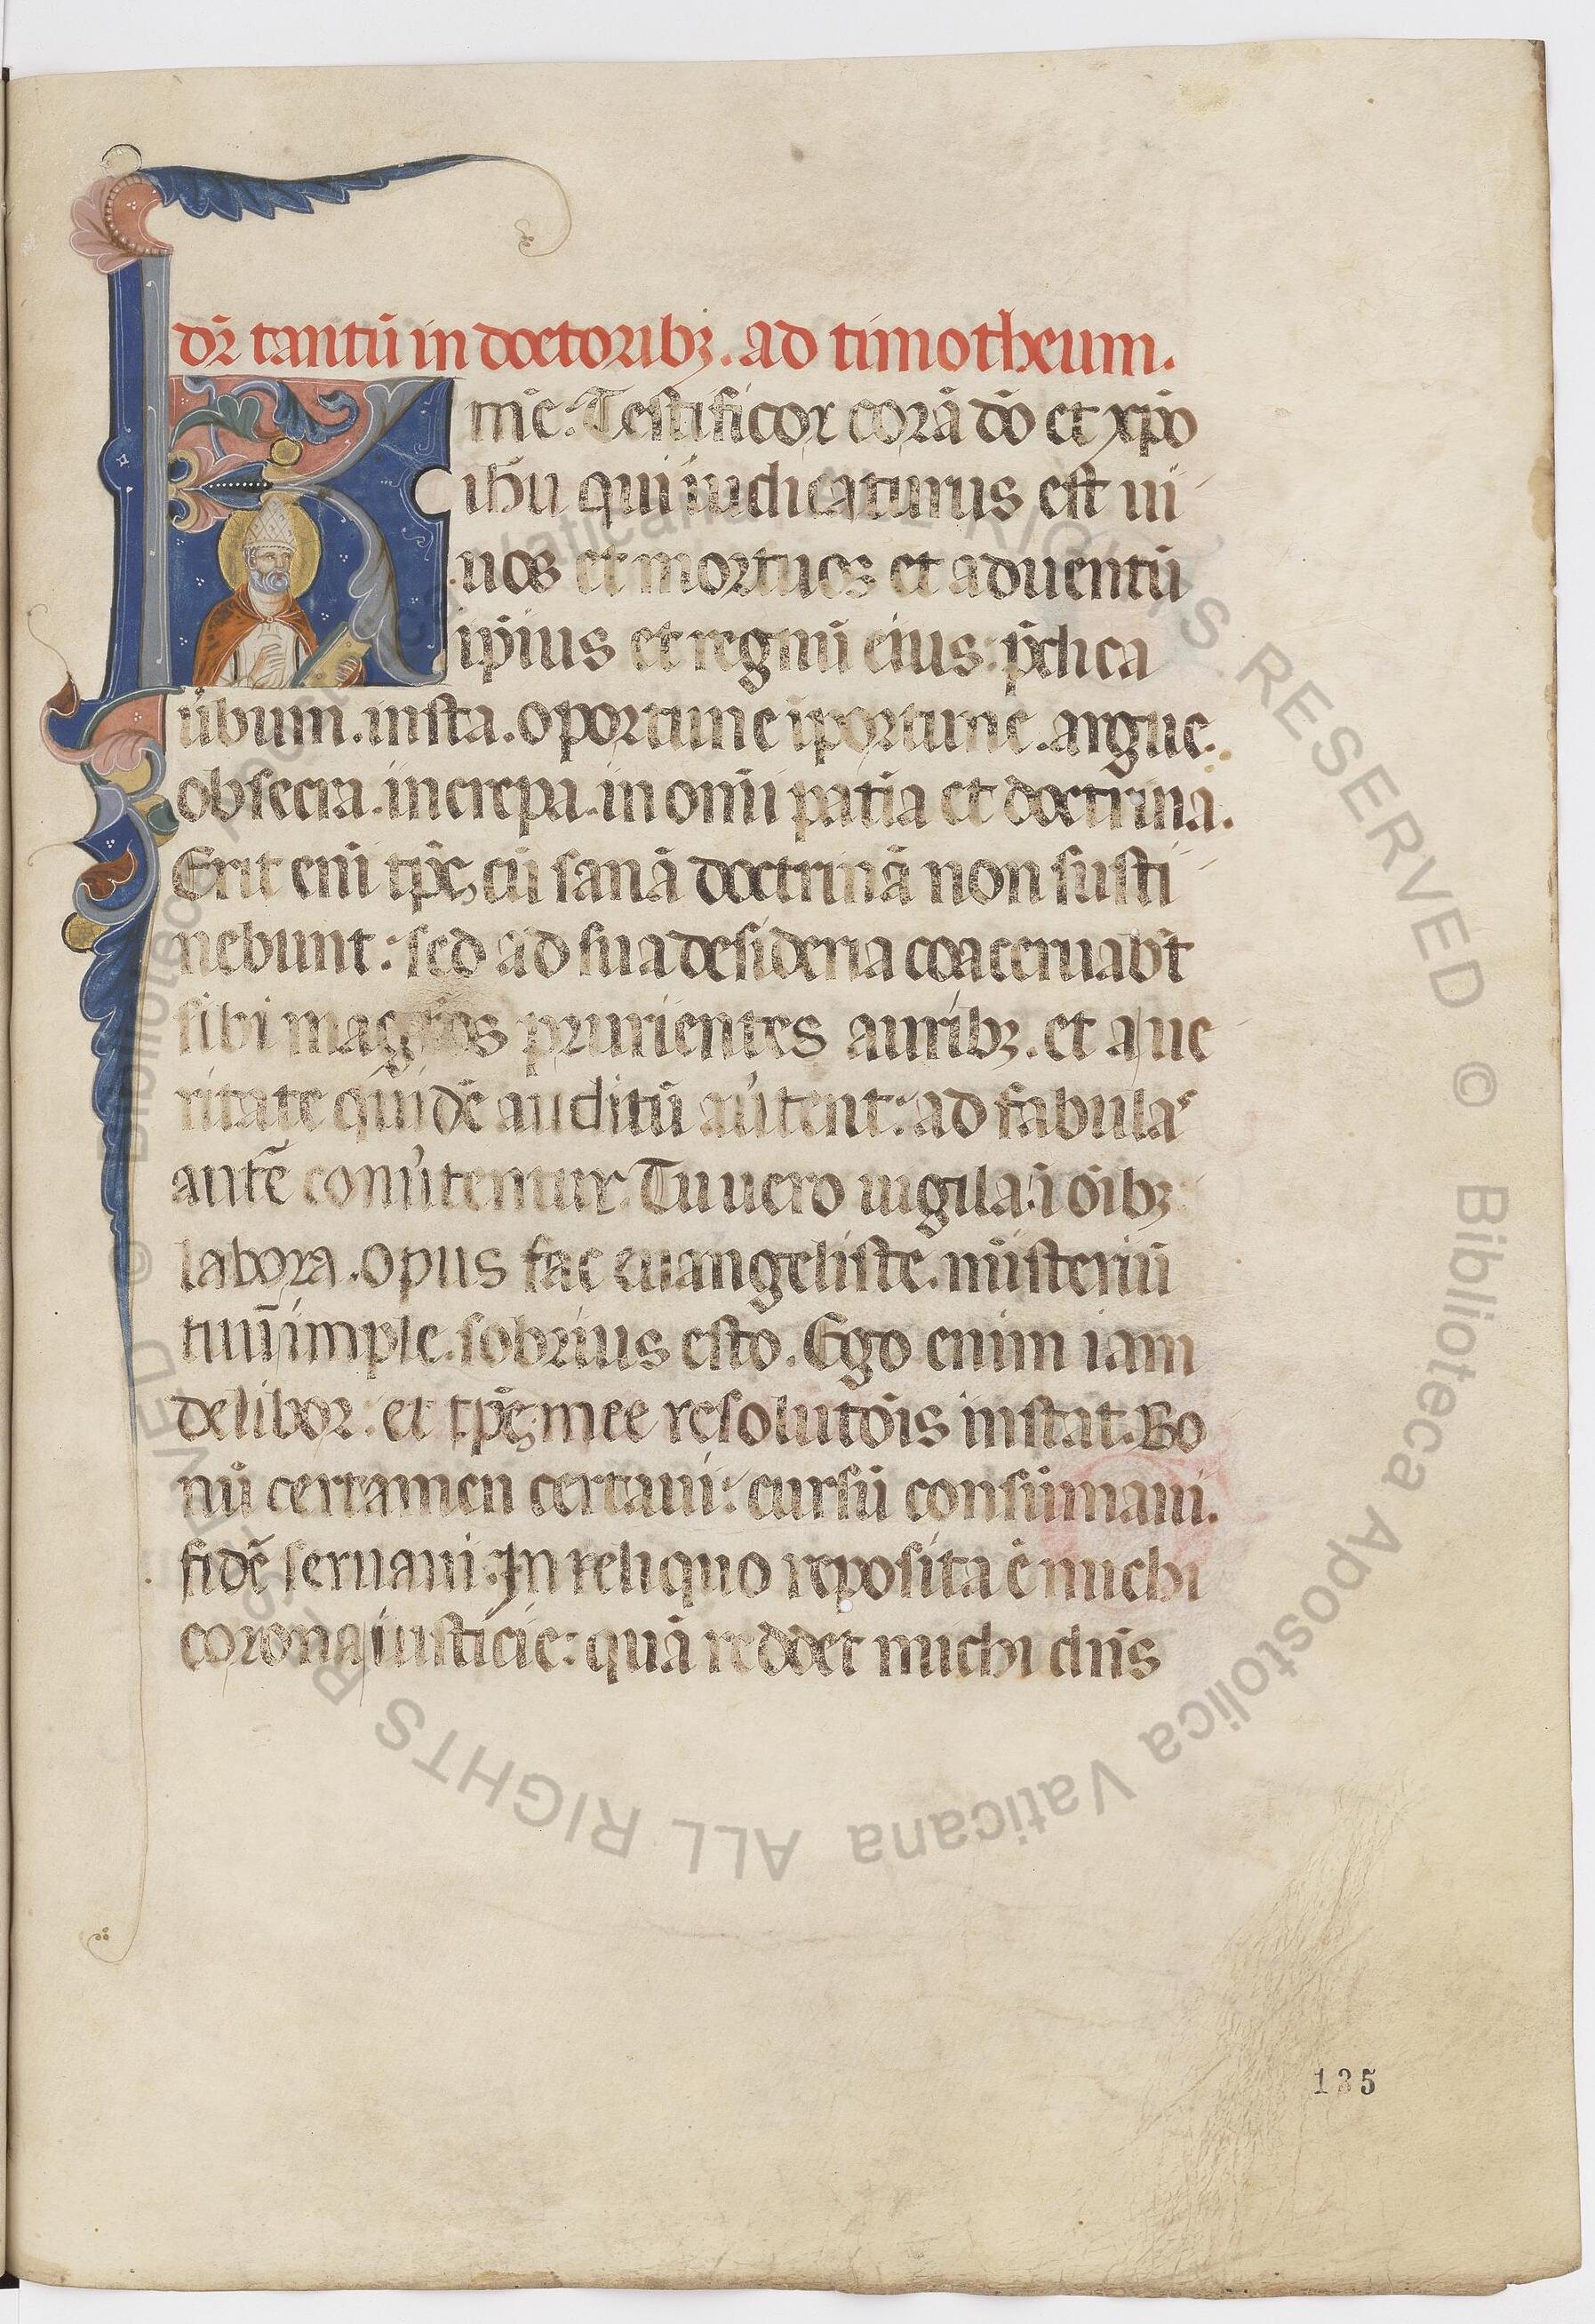 dr̄ tantū in doctoribꝫ. ad timotheum.
K
m̄e: Testificor corā dō et xp̄o
ihū qui iudicaturus est ui
uos et mortuos et aduentū
ip̄ius et regnū eius: p̄dica
ūbum. insta. oportune īportune. argue.
obsecra. increpa. in omī patīa et doctrina.
Erit enī tp̄ꝰ cū sanā doctrinā non susti
nebunt: sed ad sua desideria coaceruabt̄
sibi magr̄os prurientes auribꝫ. et a ue
ritate quidē auditū aūtent: ad fabulas
autē conūtentur. Tu uero uigila. ī oībꝫ
labora. opus fac euangeliste. mīsteriū
tuū imple. sobrius esto. Ego enim iam
delibor: et tp̄ꝰ mee resolutōis instat. Bo
nū certamen certaui: cursū consūmaui.
fidē seruaui. In reliquo reposita ē michi
corona iusticie: quā reddet michi dn̄s
135
© Biblioteca Apostolica Vaticana ALL RIGHTS RESERVED